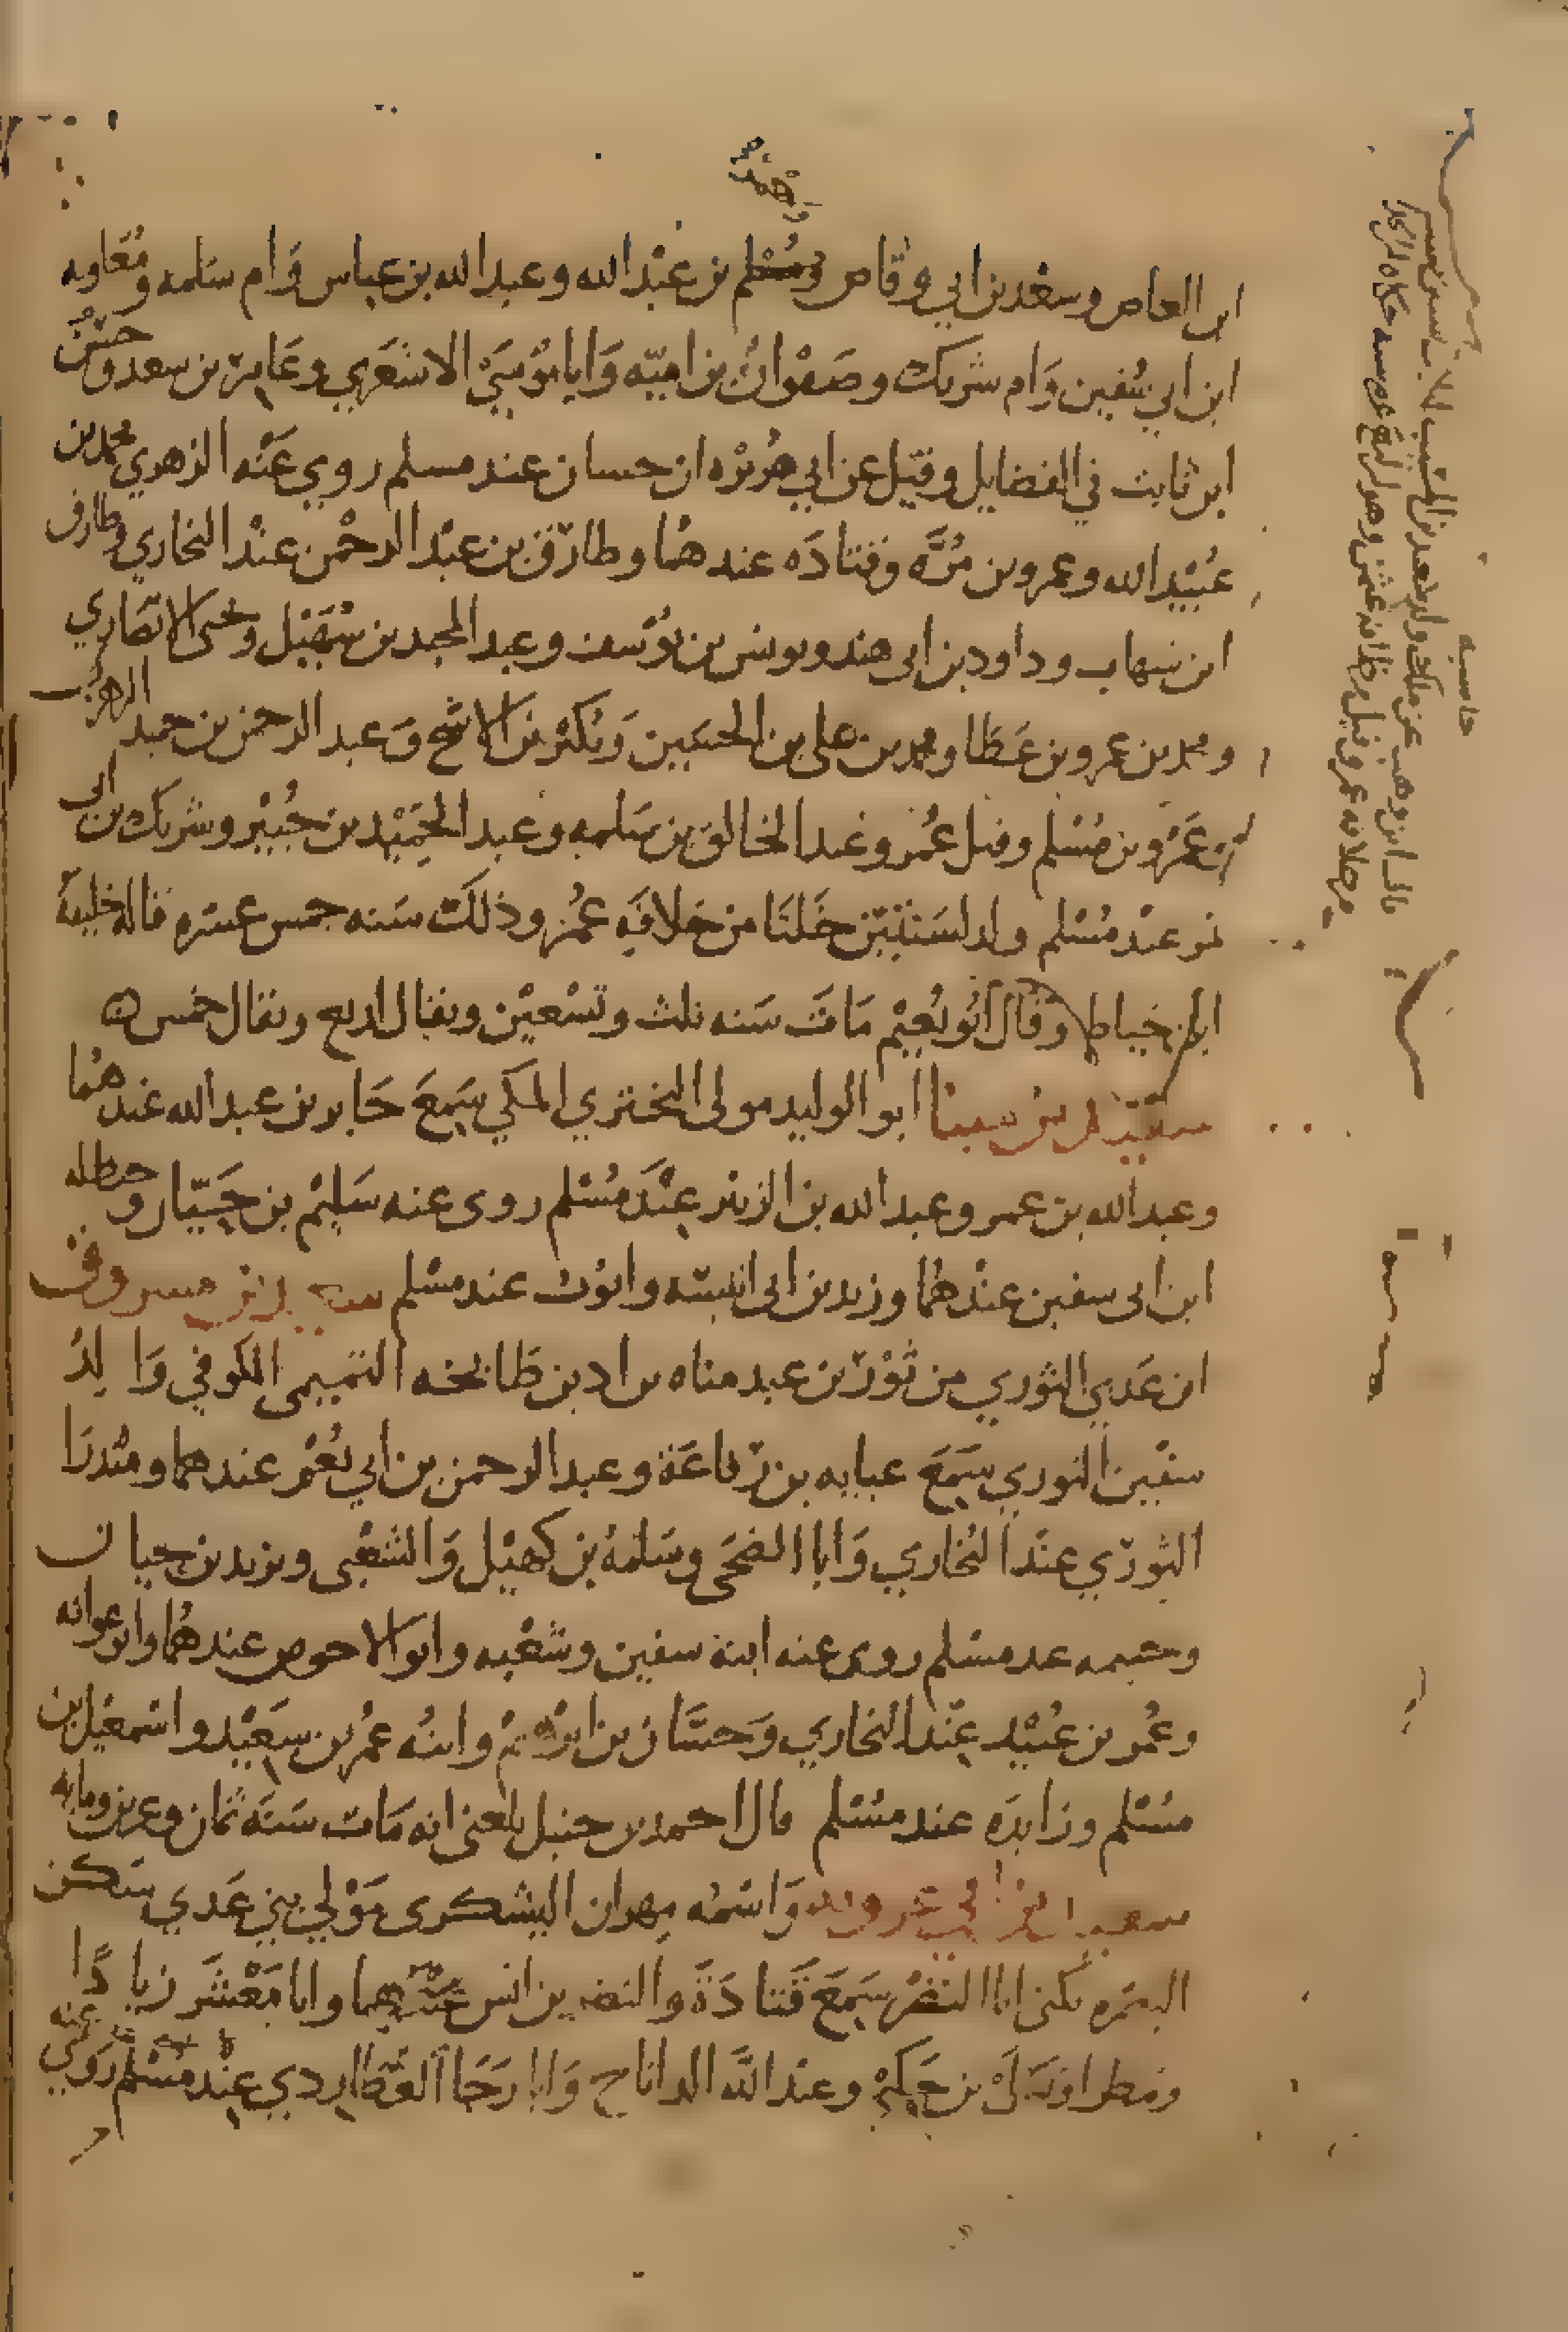 ابن العاص وسعد بن ابي وقاص ومسلم بن عبد الله وعبد الله بن عباس وام سلمه ومعاويه
ابن ابي سفين وام شريك وصفوان بن اميه وابا موسي الاشعري وعامر بن سعد وحسن
ابن ثابت في الفضايل وقيل عن ابي هريره ان حسان عند مسلم روي عنه الزهري محمد بن
عبيد الله وعمرو بن مره وقتاده عندهما وطارق بن عبد الرحمن عند البخاري وطارق
ابن شهاب وداود بن ابي هند ويونس بن يوسف وعبد المجيد بن سهيل ويحيي الانصاري
ومحمد بن عمرو بن عطا ومحمد بن علي بن الحسين وبكير بن الاشج وعبد الرحمن بن حميد
بن عمرو بن مسلم وقيل عمر وعبد الخالق بن سلمه وعبد الحميد بن جبير وشريك بن ابي
نمر عند مسلم ولد لسنتين خلتا من خلافه عمر وذلك سنه خمس عشره قاله خليفه
ابن خياط وقال ابو نعيم مات سنه ثلث وتسعين ويقال اربع ويقال خمس ه
سعيد بن مينا ابو الوليد مولي البختري المكي سمع جابر بن عبد الله عندهما
وعبد الله بن عمر وعبد الله بن الزبير عند مسلم روي عنه سليم بن حيان وحنظله
ابن ابي سفين عندهما وزيد بن ابي انيسه وايوب عند مسلم سعيد بن مسروق
ابن عدي الثوري من ثور بن عبد مناه بن اد بن طابخه التميمي الكوفي والد
سفين الثوري سمع عبايه بن رفاعة وعبد الرحمن بن ابي نعم عندهما ومنذرا
الثوري عند البخاري وابا الضحي وسلمه بن كهيل والشعبي ويزيد بن حيان
وخيثمه عند مسلم روي عنه ابنه سفين وشعبه وابو الاحوص عندهما وابو عوانه
وعمر بن عبيد عند البخاري وحسان بن ابرهيم وابنه عمر بن سعيد واسمعيل بن
مسلم وزايده عند مسلم قال احمد بن حنبل بلغني انه مات سنه ثمان وعشرين ومايه
سعيد بن ابي عروبه واسمه مهران اليشكري مولي بني عدي سكن
البصره يكني ابا النضر سمع قتادة والنضر بن انس عندهما وابا معشر زيادا
ومطرا ويعلي بن حكيم وعبد الله الداناج وابا رجا العطاردي عند مسلم روي عنه
حاشيه